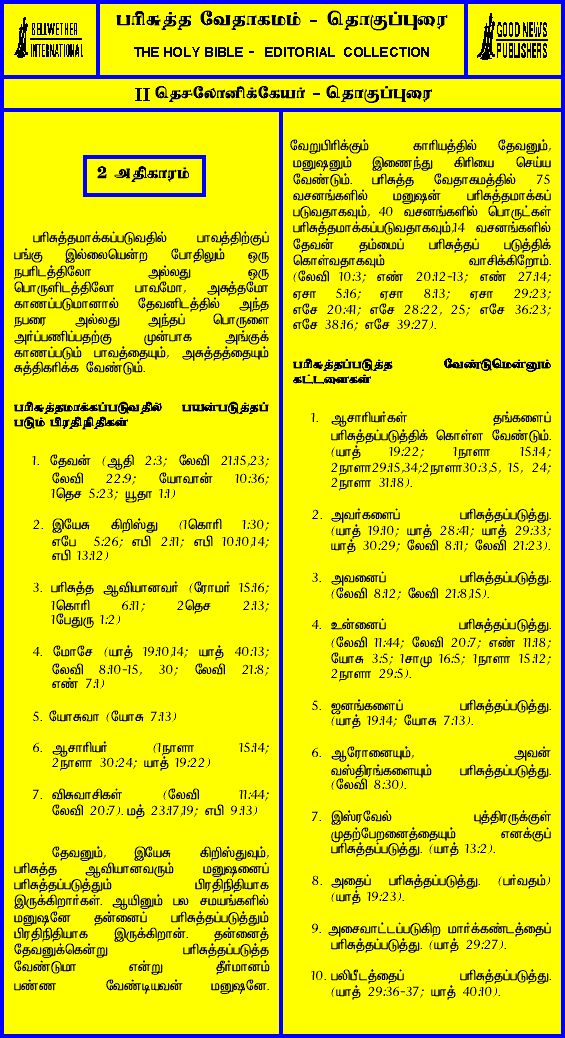 BELLWETHER
INTERNATIONAL
பரிசுத்த வேதாகமம் - தொகுப்புரை
THE HOLY BIBLE - EDITORIAL COLLECTION
GOOD NEWS
PUBLISHERS
II தெசலோனிக்கேயர் - தொகுப்புரை
2 அதிகாரம்
பரிசுத்தமாக்கப்படுவதில் பாவத்திற்குப்
பங்கு இல்லையென்ற போதிலும் ஒரு
நபரிடத்திலோ அல்லது ஒரு
பொருளிடத்திலோ பாவமோ, அசுத்தமோ
காணப்படுமானால் தேவனிடத்தில் அந்த
நபரை அல்லது அந்தப் பொருளை
அர்ப்பணிப்பதற்கு முன்பாக அங்குக்
காணப்படும் பாவத்தையும், அசுத்தத்தையும்
சுத்திகரிக்க வேண்டும்.
பரிசுத்தமாக்கப்படுவதில் பயன்படுத்தப்
படும் பிரதிநிதிகள்
1. தேவன் (ஆதி 2:3; லேவி 21:15,23;
லேவி 22:9; யோவான் 10:36;
1தெச 5:23; யூதா 1:1)
2. இயேசு கிறிஸ்து (1கொரி 1:30;
எபே 5:26; எபி 2:11; எபி 10:10,14;
எபி 13:12)
3. பரிசுத்த ஆவியானவர் (ரோமர் 15:16;
1கொரி 6:11; 2தெச 2:13;
1பேதுரு 1:2)
4. மோசே (யாத் 19:10,14; யாத் 40:13;
லேவி 8:10-15, 30; லேவி 21:8;
எண் 7:1)
5. யோசுவா (யோசு 7:13)
6. ஆசாரியர் (1நாளா 15:14;
2நாளா 30:24; யாத் 19:22)
7. விசுவாசிகள் (லேவி 11:44;
லேவி 20:7). மத் 23:17,19; எபி 9:13)
தேவனும், இயேசு கிறிஸ்துவும்,
பரிசுத்த ஆவியானவரும் மனுஷனைப்
பரிசுத்தப்படுத்தும் பிரதிநிதியாக
இருக்கிறார்கள். ஆயினும் பல சமயங்களில்
மனுஷனே தன்னைப் பரிசுத்தப்படுத்தும்
பிரதிநிதியாக இருக்கிறான். தன்னைத்
தேவனுக்கென்று பரிசுத்தப்படுத்த
வேண்டுமா என்று தீர்மானம்
பண்ண வேண்டியவன் மனுஷனே.
வேறுபிரிக்கும் காரியத்தில் தேவனும்,
மனுஷனும் இணைந்து கிரியை செய்ய
வேண்டும். பரிசுத்த வேதாகமத்தில் 75
வசனங்களில் மனுஷன் பரிசுத்தமாக்கப்
படுவதாகவும், 40 வசனங்களில் பொருட்கள்
பரிசுத்தமாக்கப்படுவதாகவும்,14 வசனங்களில்
தேவன் தம்மைப் பரிசுத்தப் படுத்திக்
கொள்வதாகவும் வாசிக்கிறோம்.
(லேவி 10:3; எண் 20:12-13; எண் 27:14;
ஏசா 5:16; ஏசா 8:13; ஏசா 29:23;
எசே 20:41; எசே 28:22, 25; எசே 36:23;
எசே 38:16; எசே 39:27).
பரிசுத்தப்படுத்த வேண்டுமென்னும்
கட்டளைகள்
1. ஆசாரியர்கள் தங்களைப்
பரிசுத்தப்படுத்திக் கொள்ள வேண்டும்.
(யாத் 19:22; 1நாளா 15:14;
2நாளா29:15,34;2நாளா30:3,5, 15, 24;
2நாளா 31:18).
2. அவர்களைப் பரிசுத்தப்படுத்து.
(யாத் 19:10; யாத் 28:41; யாத் 29:33;
யாத் 30:29; லேவி 8:11; லேவி 21:23).
3. அவனைப் பரிசுத்தப்படுத்து.
(லேவி 8:12; லேவி 21:8,15).
4. உன்னைப் பரிசுத்தப்படுத்து.
(லேவி 11:44; லேவி 20:7; எண் 11:18;
யோசு 3:5; 1சாமு 16:5; 1நாளா 15:12;
2நாளா 29:5).
5. ஜனங்களைப் பரிசுத்தப்படுத்து.
(யாத் 19:14; யோசு 7:13).
6. ஆரோனையும், அவன்
வஸ்திரங்களையும் பரிசுத்தப்படுத்து.
(லேவி 8:30).
7. இஸ்ரவேல் புத்திரருக்குள்
முதற்பேறனைத்தையும் எனக்குப்
பரிசுத்தப்படுத்து. (யாத் 13:2).
8. அதைப் பரிசுத்தப்படுத்து. (பர்வதம்)
(யாத் 19:23).
9. அசைவாட்டப்படுகிற மார்க்கண்டத்தைப்
பரிசுத்தப்படுத்து. (யாத் 29:27).
10. பலிபீடத்தைப் பரிசுத்தப்படுத்து.
(யாத் 29:36-37; யாத் 40:10).